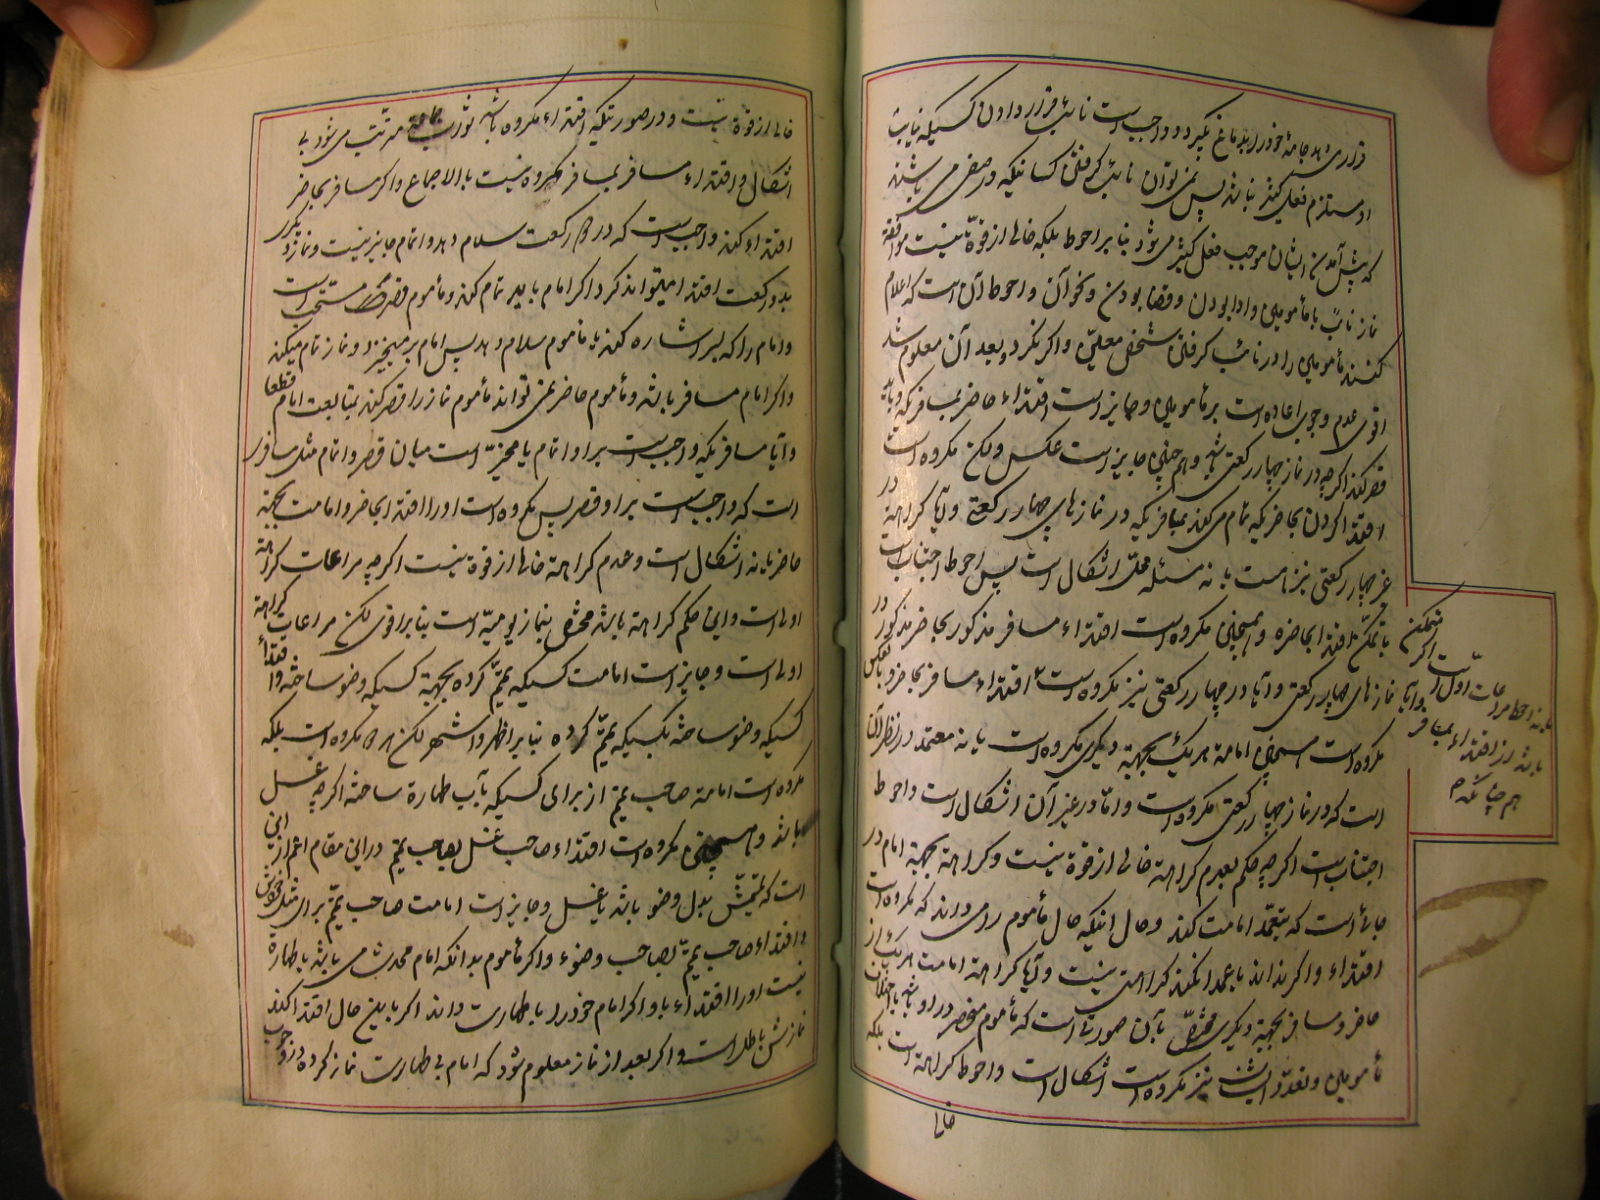 قرار می دهد جامهٔ خود را بدماغ بگیرد و واجب است نائب قرار دادن و کسیکه نیابت
او مستلزم فعل کثیر نباشد پس نمی توان نائب گرفتن کسانیکه در صفی می باشند
که پیش آمدن ایشان موجب فعل کثیر می شود بنا بر احوط بلکه خالی از قوة نیست موافقة
نماز نائب با مأمومین و ادا بودن و قضا بودن و نحو آن و احوط آن است که اعلام
کنند مأمومین را در نائب گرفتن شخص معیّن و اگر نکردند و بعد آن معلوم شد
اقوی عدم وجوب اعاده است بر مأمومین و جایز است اقتداء حاضر بمسافر که
قصر کند اگرچه در نماز چهار رکعتی باشد و هم چنین جایز است عکس و لکن مکروه است
اقتدا کردن بحاضر یکه تمام می کند بمسافریکه در نماز های چهار رکعتی و آیا کراهة در
غیر چهار رکعتی نیز هست یا نه مسئله محل اشکال است پس احوط اجتناب است
با تمکّن اقتدا بحاضره و همچنین مکروه است اقتداء مسافر مذکور بحاضر مذکور در
نماز های چهار رکعتی و آیا در چهار رکعتی نیز مکروه است اقتداء مسافر بحاضر و بعکس
مکروه است همچنین امامة هر یک بجهة دیگری مکروه است یا نه معتمد در نظر آن
است که در نماز چهار رکعتی مکروه است و امّا در غیر آن اشکال است و احوط
اجتناب است اگرچه حکم بعدم کراهة خالی از قوة نیست و کراهة بجهة امام در
جائی است که بتعمّد امامت کند و حال اینکه حال مأموم را می داند که مکروه است
اقتداء و اگر نداند یا عمدا نکند کراهتی نیست و آیا کراهة امامت هر یک از
حاضر و مسافر بجهة دیگری مختصّ بآن صورتی است که مأموم منحصر در او باشد یا
مأمومین و تعدّد ایشان نیز مکروه است اشکال است و احوط کراهة است بلکه
خالی
خالی از قوة نیست و در صورتیکه اقتداء مکروه باشد ثواب جماعة مرتّب می شود بی
اشکال و اقتداء مسافر بمسافر مکروه نیست بالاجماع و اگر مسافر بحاضر
اقتداء کند واجب است که در دو رکعت سلام دهد و اتمام جایز نیست و نماز دیگری
بدو رکعت اقتدا میتواند کرد اگر امام باید تمام کند و مأموم قصر کند مستحب است
و امام را که بسر اشاره کند تا مأموم سلام دهد پس امام بر میخیزد و نماز تمام میکند
و اگر امام مسافر باشد و مأموم حاضر نمی تواند مأموم نماز را قصر کند بمتابعت امام قطعا
و آیا مسافریکه واجب است بر او اتمام یا مخیّر است میان قصر و اتمام مثل مسافری
است که واجب است بر او قصر پس مکروه است او را اقتدا بحاضر و امامت بجهة
حاضر یا نه اشکال است و عدم کراهة خالی از قوة نیست اگرچه مراعات کراهة
اولی است و این حکم کراهة باشد مختص بنماز یومیّه است بنا بر اقوی لکن مراعات کراهة
اولی است و جایز است امامت کسیکه تیمّم کرده بجهة کسیکه وضو ساخته و اقتداء
کسیکه وضو ساخته بکسیکه تیمّم کرده بنا بر اظهر و اشهر لکن هر دو مکروه است بلکه
مکروه است امامة صاحب تیمّم از برای کسیکه بآب طهارة ساخته اگرچه غسل
باشد و همچنین مکروه است اقتداء صاحب غسل بصاحب تیمّم در این مقام اعم از این
است که تیمّمش بدل وضو باشد یا غسل و جایز است امامت صاحب تیمّم برای مثل خودش
و اقتداء صاحب تیمّم بصاحب وضوء و اگر مأموم بداند که امام محدث می باشد یا طهارة
نیست او را اقتداء باو اگر امام خود را با طهارت داند اگر باین حال اقتدا کند
نمازش باطل است و اگر بعد از نماز معلوم شود که امام بی طهارت نماز کرده